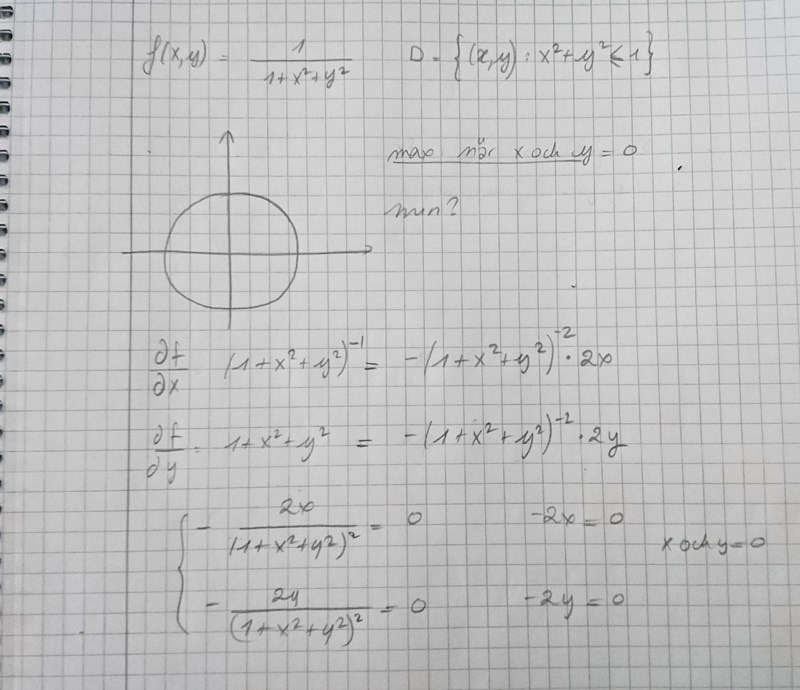 f(x,y) = 1/(1+x²+y²) D = {(x,y) : x²+y² ≤ 1}
max när x och y = 0
min?
∂f/∂x (1+x²+y²)⁻¹ = -(1+x²+y²)⁻² · 2x
∂f/∂y = 1+x²+y² = -(1+x²+y²)⁻² · 2y
{ - 2x/(1+x²+y²)² = 0 -2x = 0
x och y = 0
- 2y/(1+x²+y²)² = 0 -2y = 0